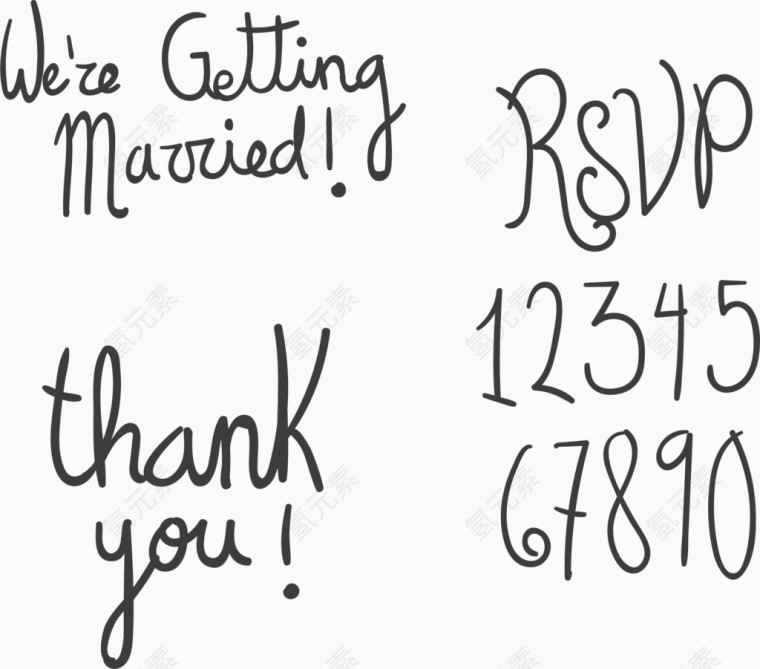 We're Getting
Married!
RSVP
12345
67890
thank
you!
氢元素